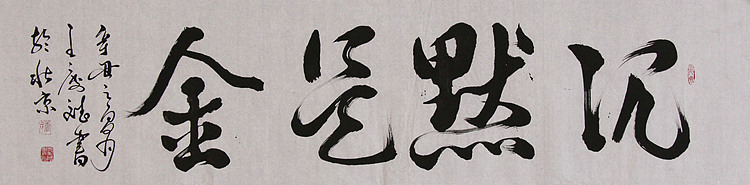 沉默是金
辛丑之夏月
王慶書
於北京